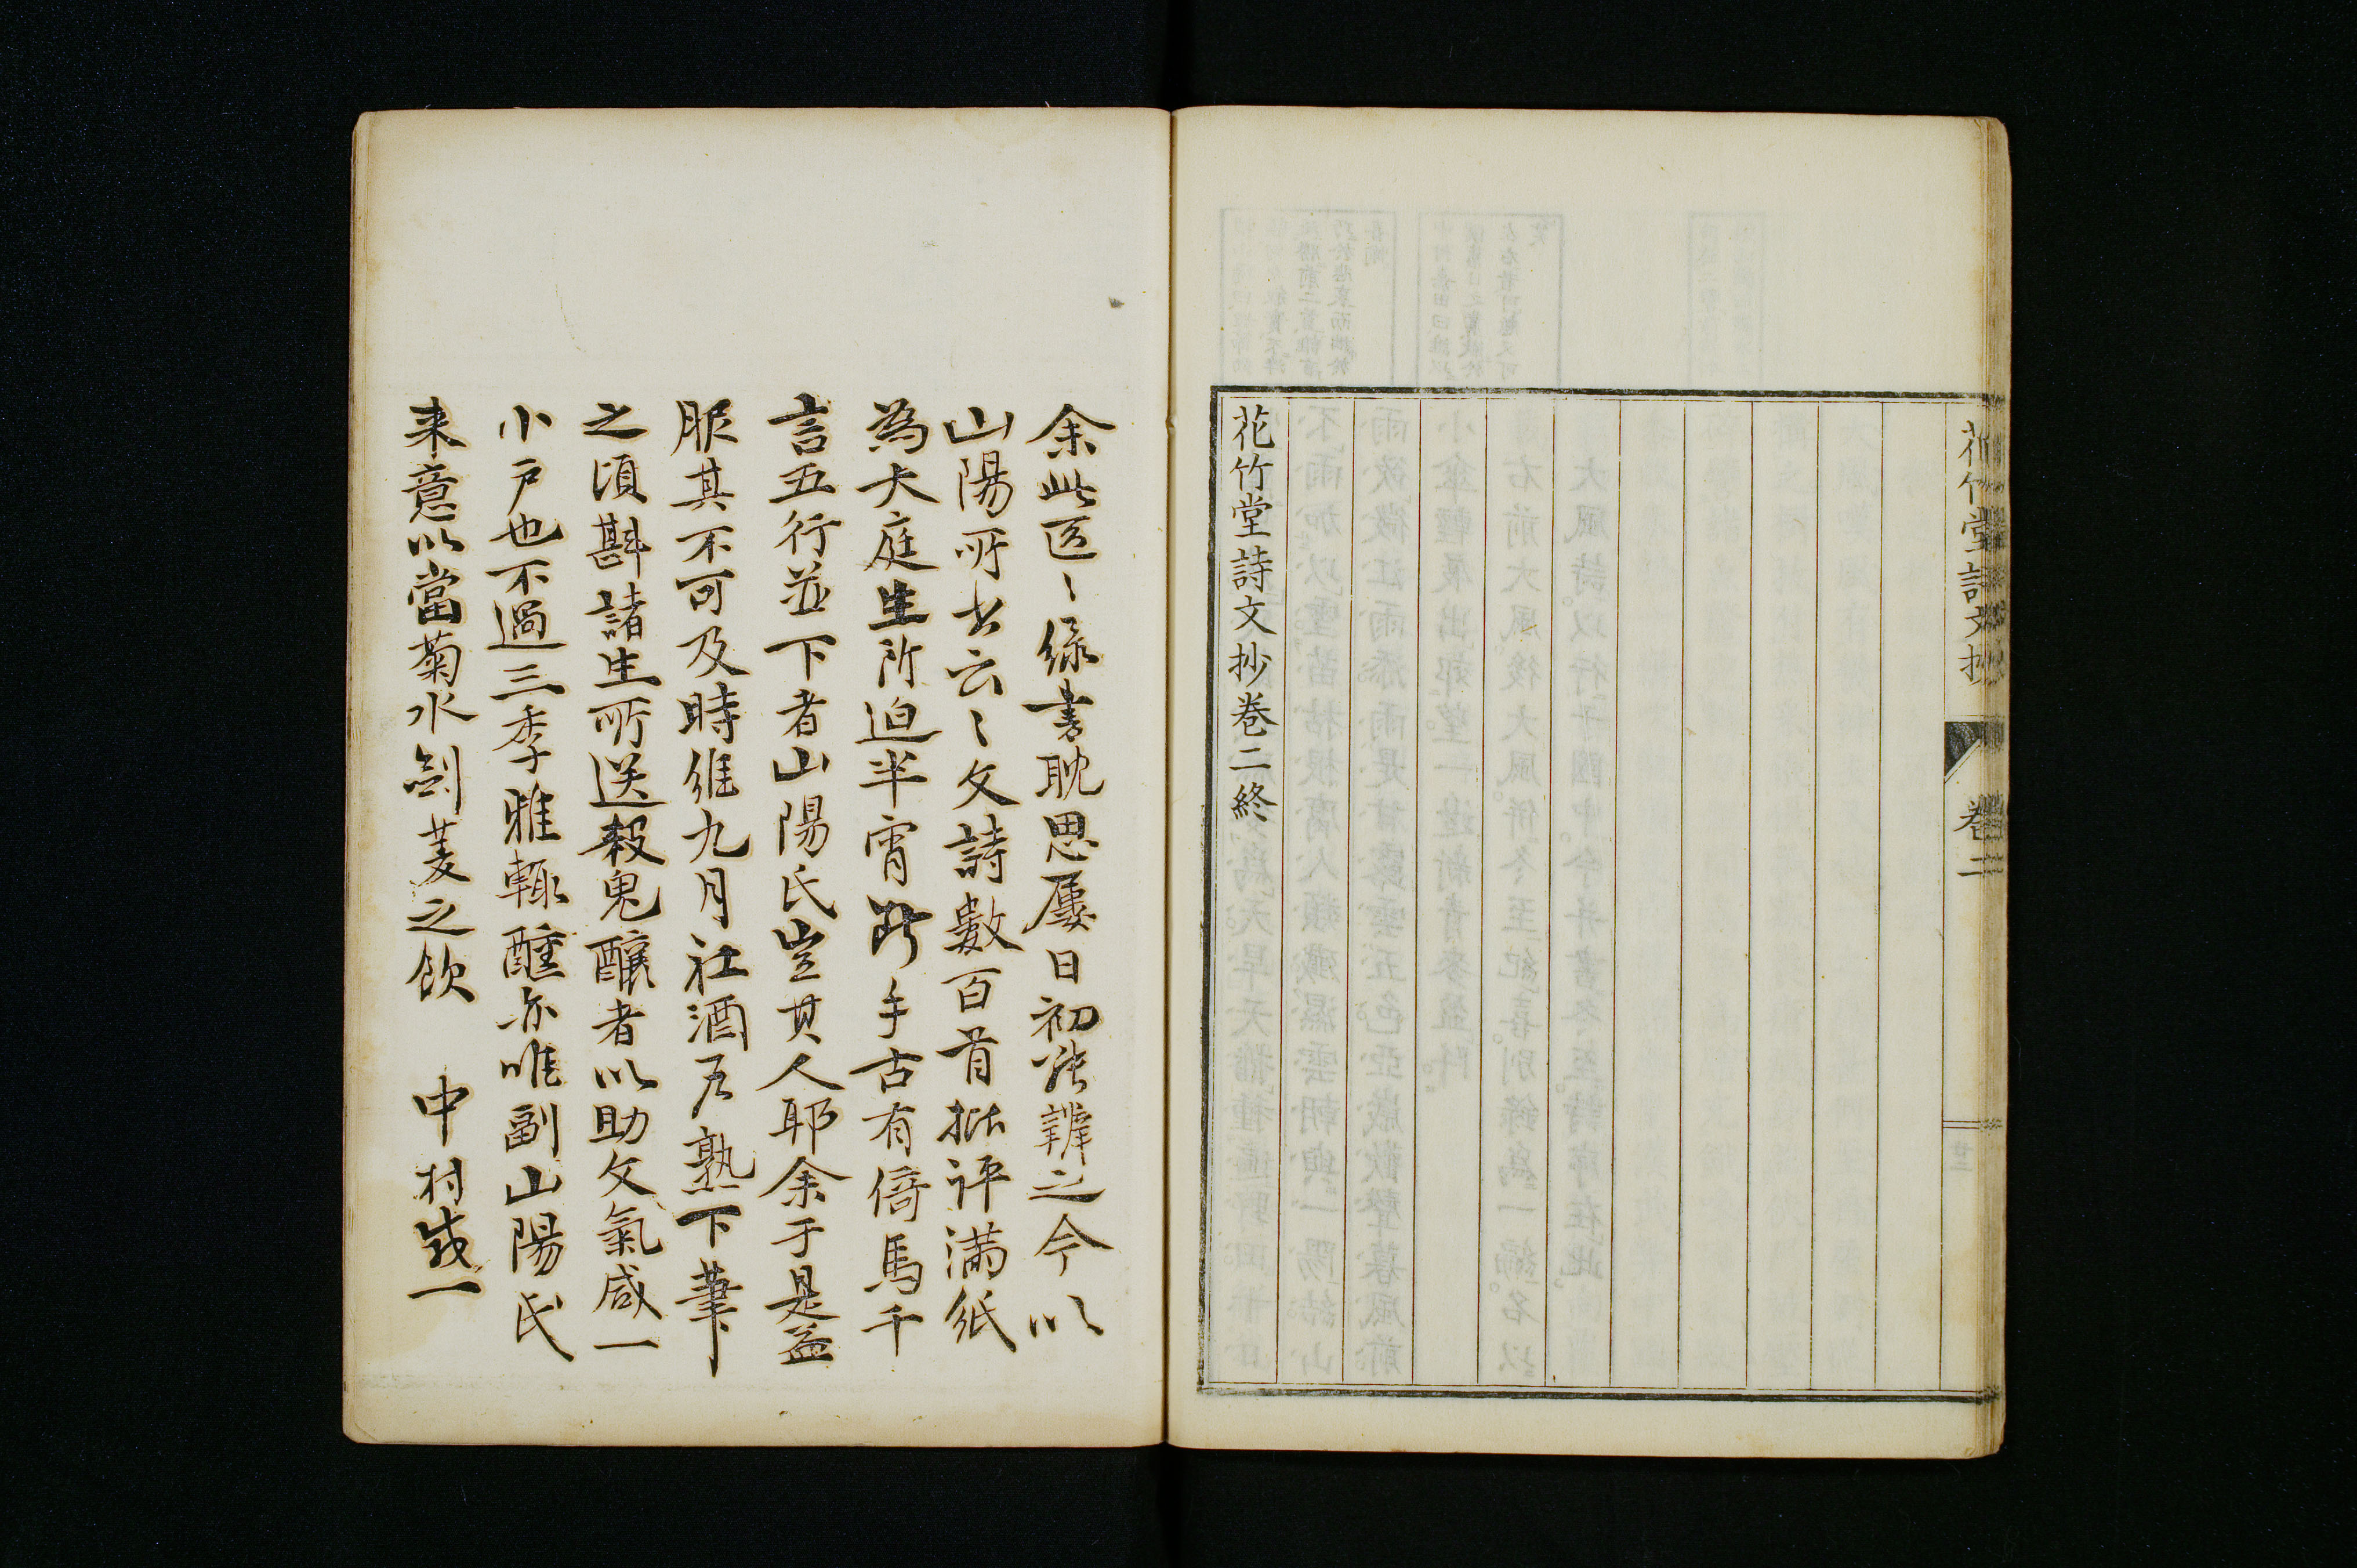 花竹堂詩文抄
卷二
花竹堂詩文抄卷二終
余此區〻緑書耽思屢日初能辨之今以
山陽所書云〻文詩數百首批評滿紙
為大庭生所迫半宵斷手古有倚馬千
言五行並下者山陽氏豈其人耶余于是益
服其不可及時維九月社酒乃熟下筆
之頃斟諸生所送殺鬼釀者以助文氣咸一
小戶也不過三季雅輒醺亦唯副山陽氏
来意以當菊水劍菱之飲
中村